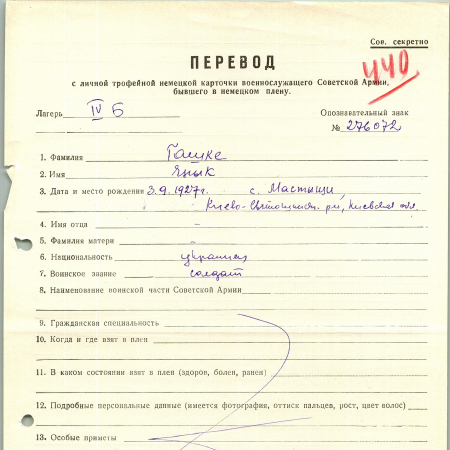 Сов. секретно
ПЕРЕВОД
440
с личной трофейной немецкой карточки военнослужащего Советской Армии,
бывшего в немецком плену.
Лагерь IV Б
Опознавательный знак
№ 276072
1. Фамилия Гашке
2. Имя Яцык
3. Дата и место рождения 3.9.1927г. с. Мастыщи,
Киево-Святошинск. р-н, Киевская обл.
4. Имя отца –
5. Фамилия матери –
6. Национальность украинец
7. Воинское звание солдат
8. Наименование воинской части Советской Армии
9. Гражданская специальность
10. Когда и где взят в плен
11. В каком состоянии взят в плен (здоров, болен, ранен)
12. Подробные персональные данные (имеется фотография, оттиск пальцев, рост, цвет волос)
13. Особые приметы